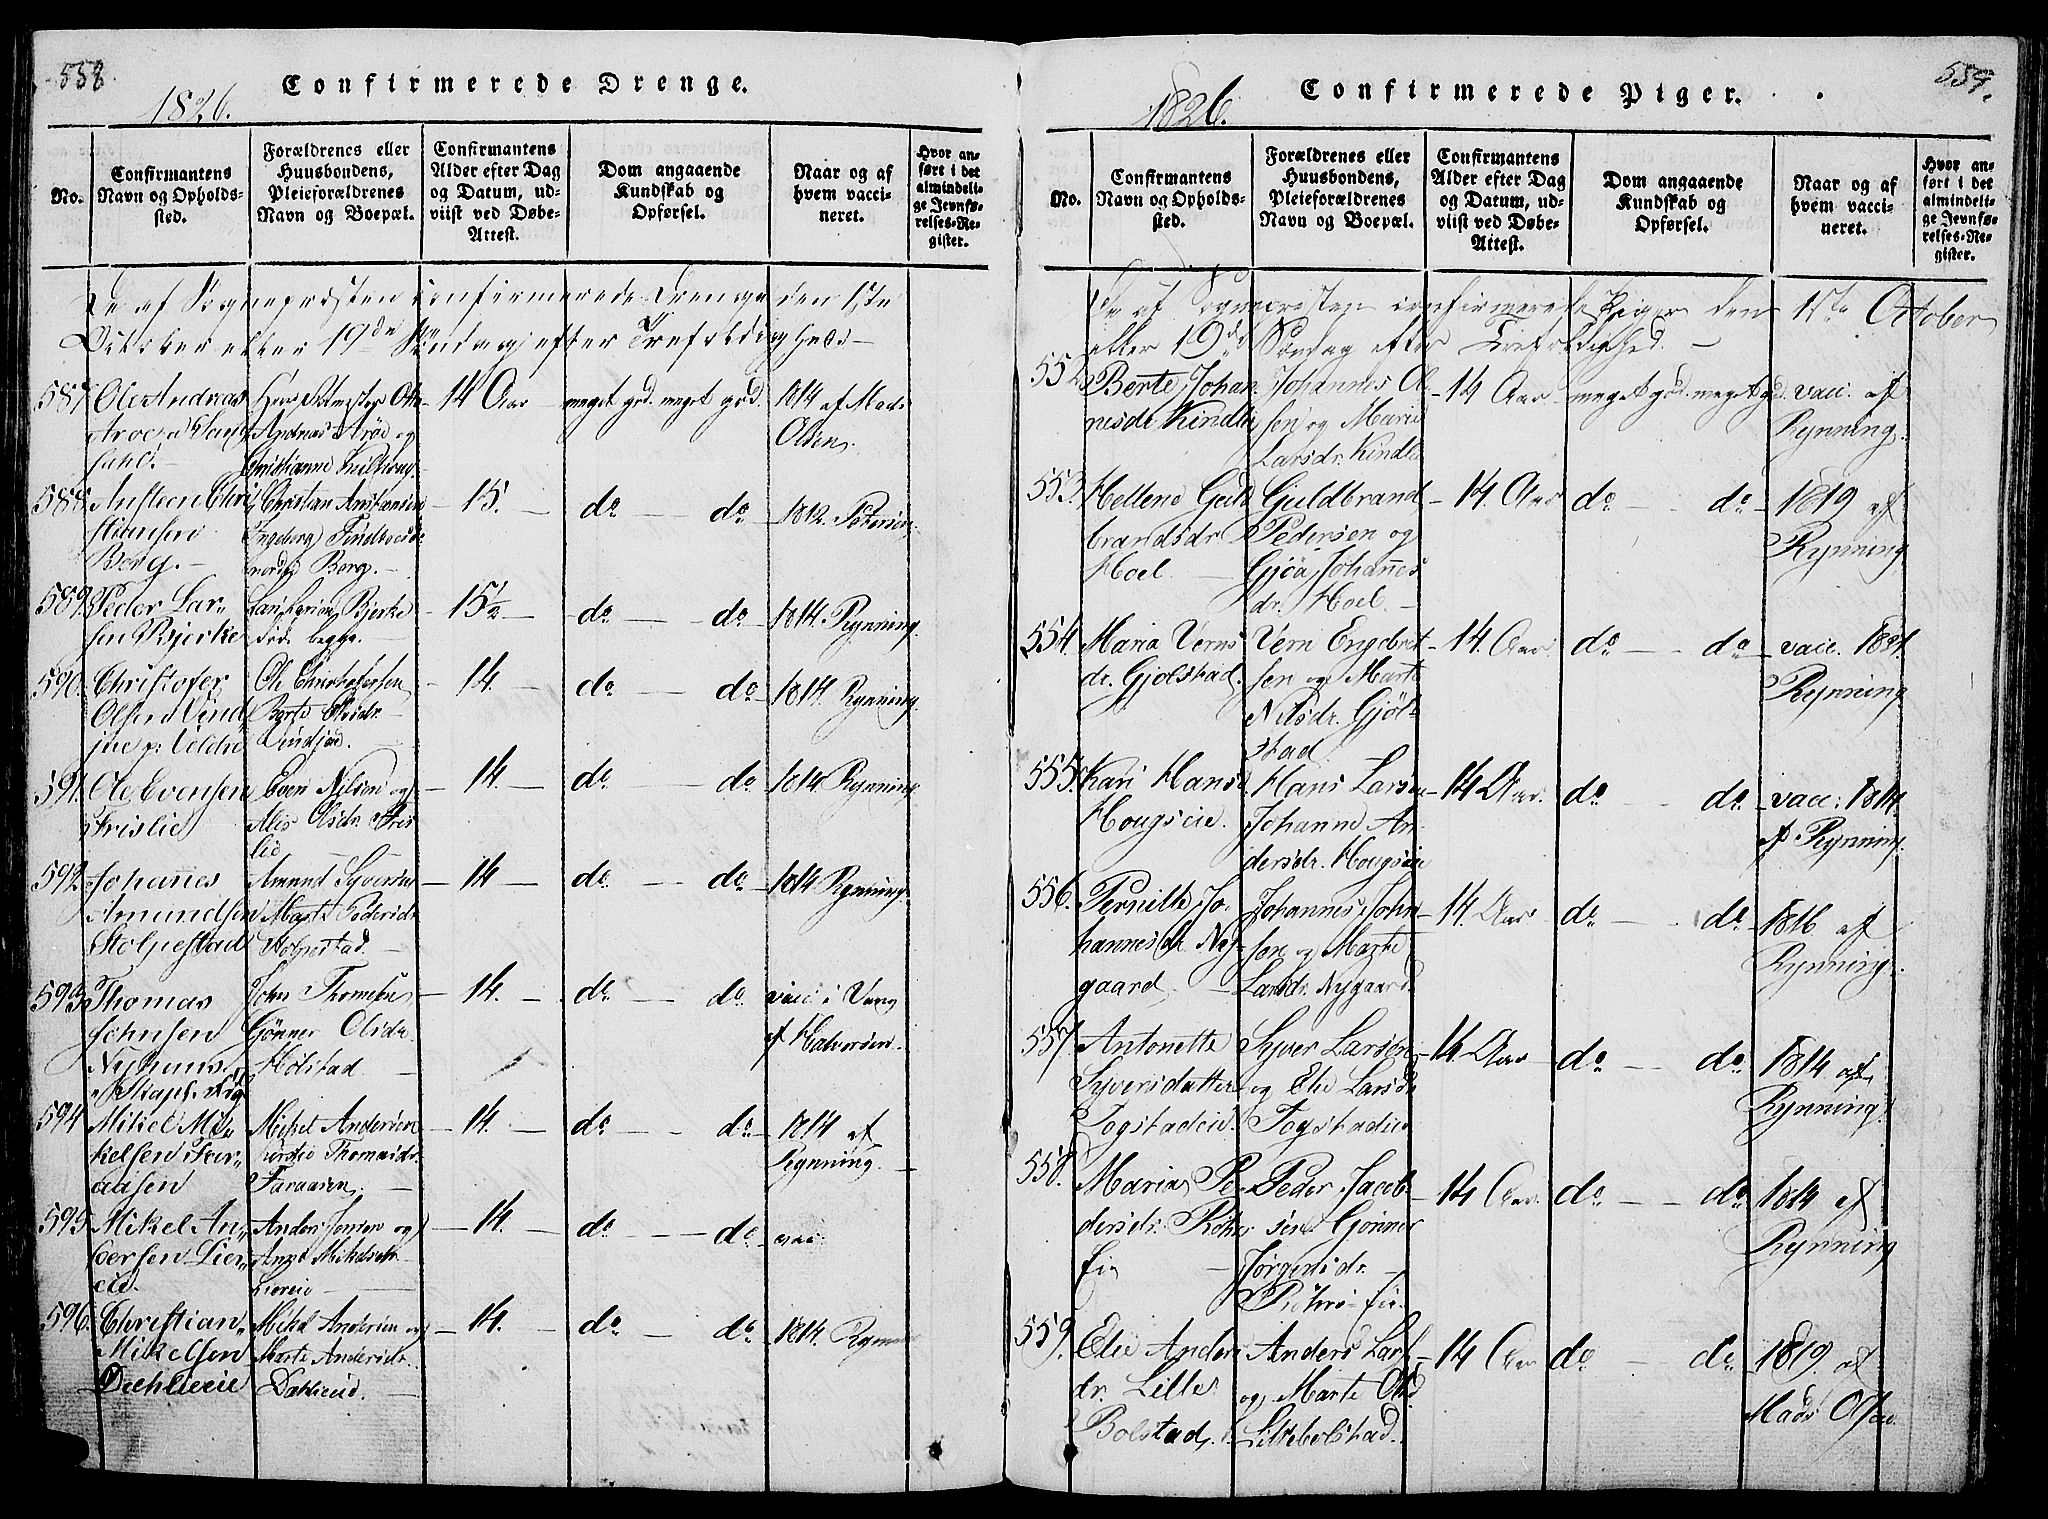 558.
Confirmerede Drenge.
1826.
No.
Confirmantens
Navn og Opholds-
sted.
Forældrenes eller
Huusbondens,
Pleieforældrenes
Navn og Boepæl.
Confirmantens
Alder efter Dag
og Datum, ud-
viist ved Døbe-
Attest.
Dom angaaende
Kundskab og
Opførsel.
Naar og af
hvem vacci-
neret.
Hvor an-
ført i det
almindeli-
ge Jevnfø-
relses-Re-
gister.
De af Sognepræsten confirmerede Drenge den 1ste
October eller 19de Søndag efter Trefoldigheds
587. Ole Andreas
14 Aar meget god. meget god. 1814 af Mads
Andreas Arøe og
Olsen.
588. Ansteen Chri
stiansen
Borg.
Christian Anstensen
Ingeborg
Borg.
15. do do 1812. Petersen.
589. Peder Lar-
sen Bjerke
Lars Larsen Bjerke
begge.
15½ do do 1814. Rynning.
590. Christofer
Olsen Vind
Ole Christophersen
Berte Olsdr.
14. do do 1814. Rynning.
591. Ole Evensen
Frislie
Even Nilsen og
Olsdr. Fris
lie
14. do do 1814 Rynning
592. Johannes
Amundsen
Stolpestad
Amund Syversen
Marte Pedersdr.
Stolpestad
14 do do 1814 Rynning.
593 Thomas
Johnsen
Nyhuus
John Thomesen
Gønner Olsdr.
Holstad
14. do do vacc i Vang
af Halvorsen.
594 Mikel Mi-
kelsen Far-
aasen
Mikel Andersen
Thomasdr.
Faraasen.
14. do do 1814 af
Rynning.
595 Mikel An-
dersen Lier-
eie.
Anders Jensen og
Anne Mikelsdr.
Liereie
14. do do vacc:
596. Christian
Mikelsen
Dæhlieeie
Mikel Andersen og
Marte Andersdr.
Dæhlieeid.
14. do do 1814.
559.
Confirmerede Piger.
1826.
No.
Confirmantens
Navn og Opholds-
sted.
Forældrenes eller
Huusbondens,
Pleieforældrenes
Navn og Boepæl.
Confirmantens
Alder efter Dag
og Datum, ud-
viist ved Døbe-
Attest.
Dom angaaende
Kundskab og
Opførsel.
Naar og af
hvem vacci-
neret.
Hvor an-
ført i det
almindeli-
ge Jevnfø-
relses-Re-
gister.
De af Sognepresten confirmerede Piger den 1ste October
eller 19de Søndag efter Trefoldighed.
552. Berte Johan
nesdr Kindlie
Johannes Ol-
sen og Marie
Larsdr. Kindlie
14 Aar meget god. meget god. vacc. af
Rynning.
553. Hellene Guld
brandsdr
Hoel.
Guldbrand
Pedersen og
Gjøa Johannes
dr. Hoel.
14. Aar do do 1819 af
Rynning
554. Maria Verns
dr. Gjølstad.
Vern Engebret
sen og Marte
Nilsdr. Gjøl-
stad
14. Aar. do do vacc. 1821.
Rynning
555. Kari Hansd
Hougseie.
Hans Larsen
Johanne An-
dersdr. Hougseie
14 Aar. do do. vacc: 1814.
af Rynning.
556. Pernille Jo-
hannesdr. Ny-
gaard
Johannes John
sen og Marte
Larsdr. Nygaard.
14. Aar do do 1816 af
Rynning.
557. Antonette
Syversdatter
Togstadeie.
Syver Larsen
og Elie Larsdr
Togstadeie
14. Aar do do 1814 af
Rynning.
558. Maria Pe-
dersdr.
Eie
Peder Jacob-
sen Gønner
Jørgensdr.
14 Aar. do do 1814 af
Rynning
559. Elie Anders
dr. Lille
Bolstad.
Anders Lars
og Marte Olsd
Lillebolstad.
14 Aar do do 1819. af
Mads Olsen.